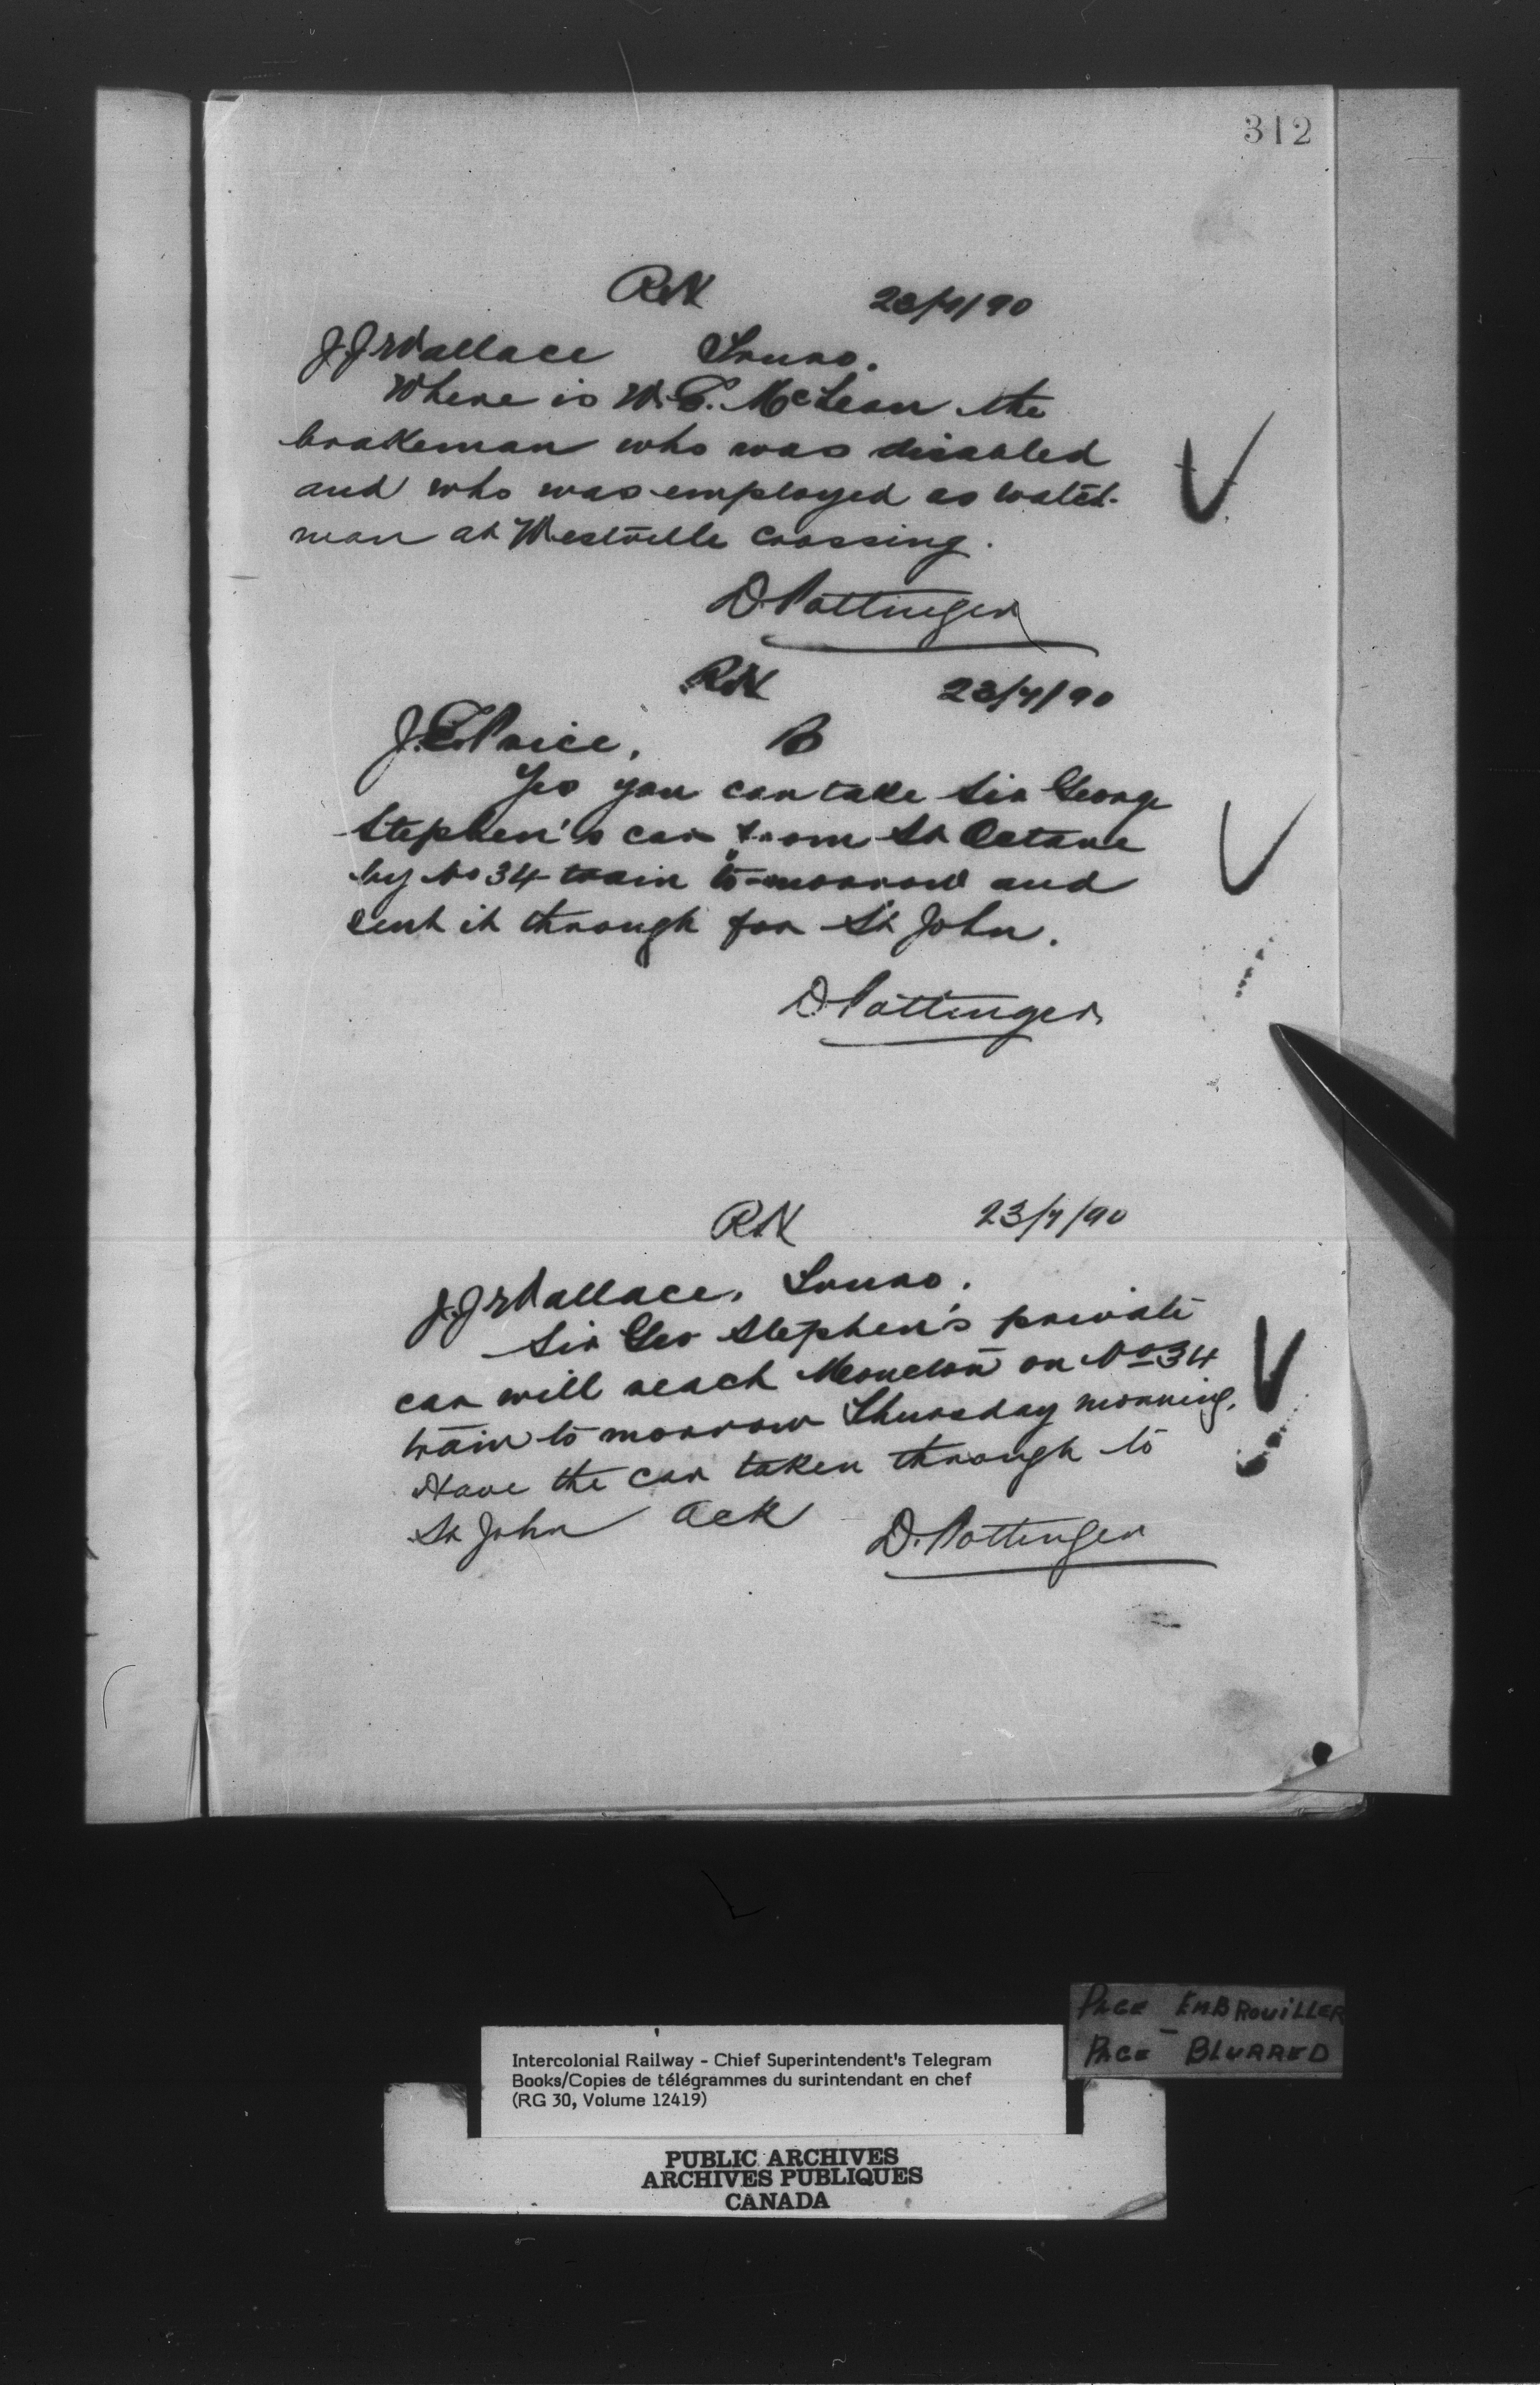 312
RN 23/7/90
J.J. Wallace Truro.
Where is W.E. McLean the
brakeman who was disabled
and who was employed as watch-
man at Westville Crossing.
D. Pottinger
RN 23/7/90
J.E. Price, B
Yes you can take Sir George
Stephen's car from St Octave
by No 34 train to-morrow and
sent it through for St John.
D. Pottinger
RN 23/7/90
J.J. Wallace. Truro.
Sir Geo Stephen's private
car will reach Moncton on No 34
train to morrow Thursday morning.
Have the car taken through to
St John Ack D. Pottinger
PAGE EMBROUILLER
PAGE BLURRED
Intercolonial Railway - Chief Superintendent's Telegram
Books/Copies de télégrammes du surintendant en chef
(RG 30, Volume 12419)
PUBLIC ARCHIVES
ARCHIVES PUBLIQUES
CANADA